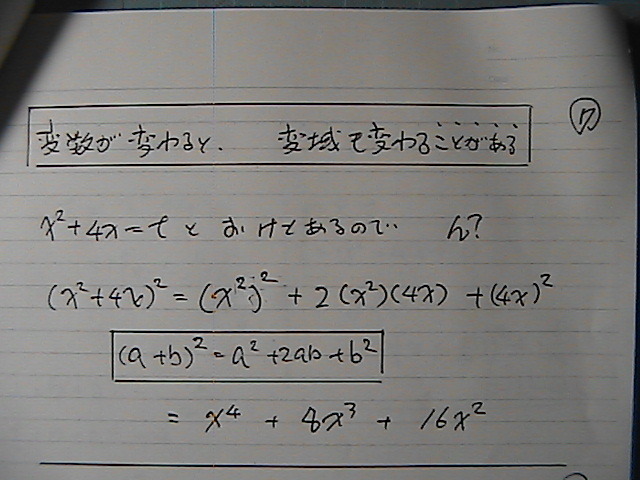 ウ
変数が変わると、 変域も変わることがある
x²+4x=t とおけとあるので… ん?
(x²+4x)² = (x²)² + 2(x²)(4x) + (4x)²
(a+b)² = a² + 2ab + b²
= x⁴ + 8x³ + 16x²